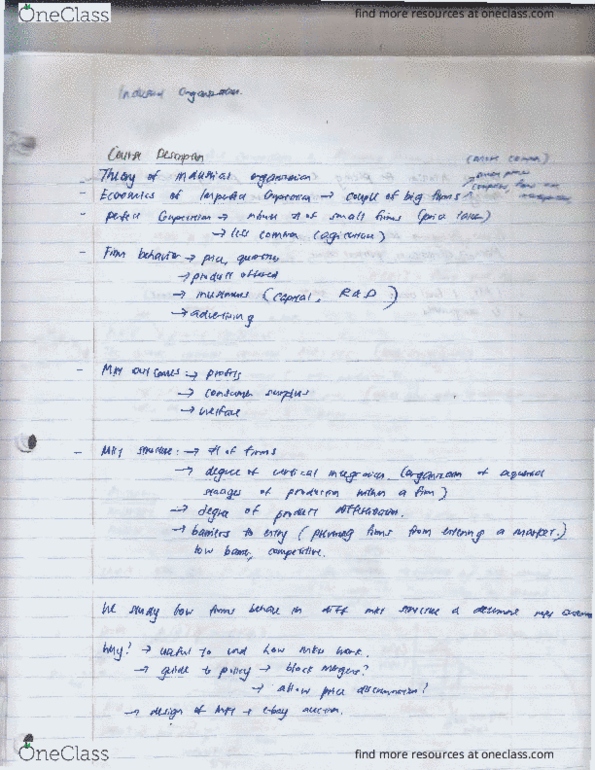 OneClass
find more resources at oneclass.com
Industrial Organization.
Course Description
(more common)
- Theory of industrial organization
- Economics of Imperfect Competition → couple of big firms
- perfect Competition → # of small firms (price taker)
→ less common (agriculture)
- Firm behavior → price, quantity
→ product offered
→ investments (capital, R&D)
→ advertising
- Mkt outcomes: → profits
→ consumer surplus
→ welfare
- Mkt structure: → # of firms
→ degree of vertical integration (organization of
stages of production within a firm)
→ degree of product differentiation.
→ barriers to entry ( firms from entering a market.)
low barrier, competitive.
We study how firms behave in diff mkt structure & determine mkt
Why? → useful to und how mkts work.
→ guide to policy → block mergers?
→ allow price discrimination?
→ design of mkt → e-bay auction.
OneClass
find more resources at oneclass.com